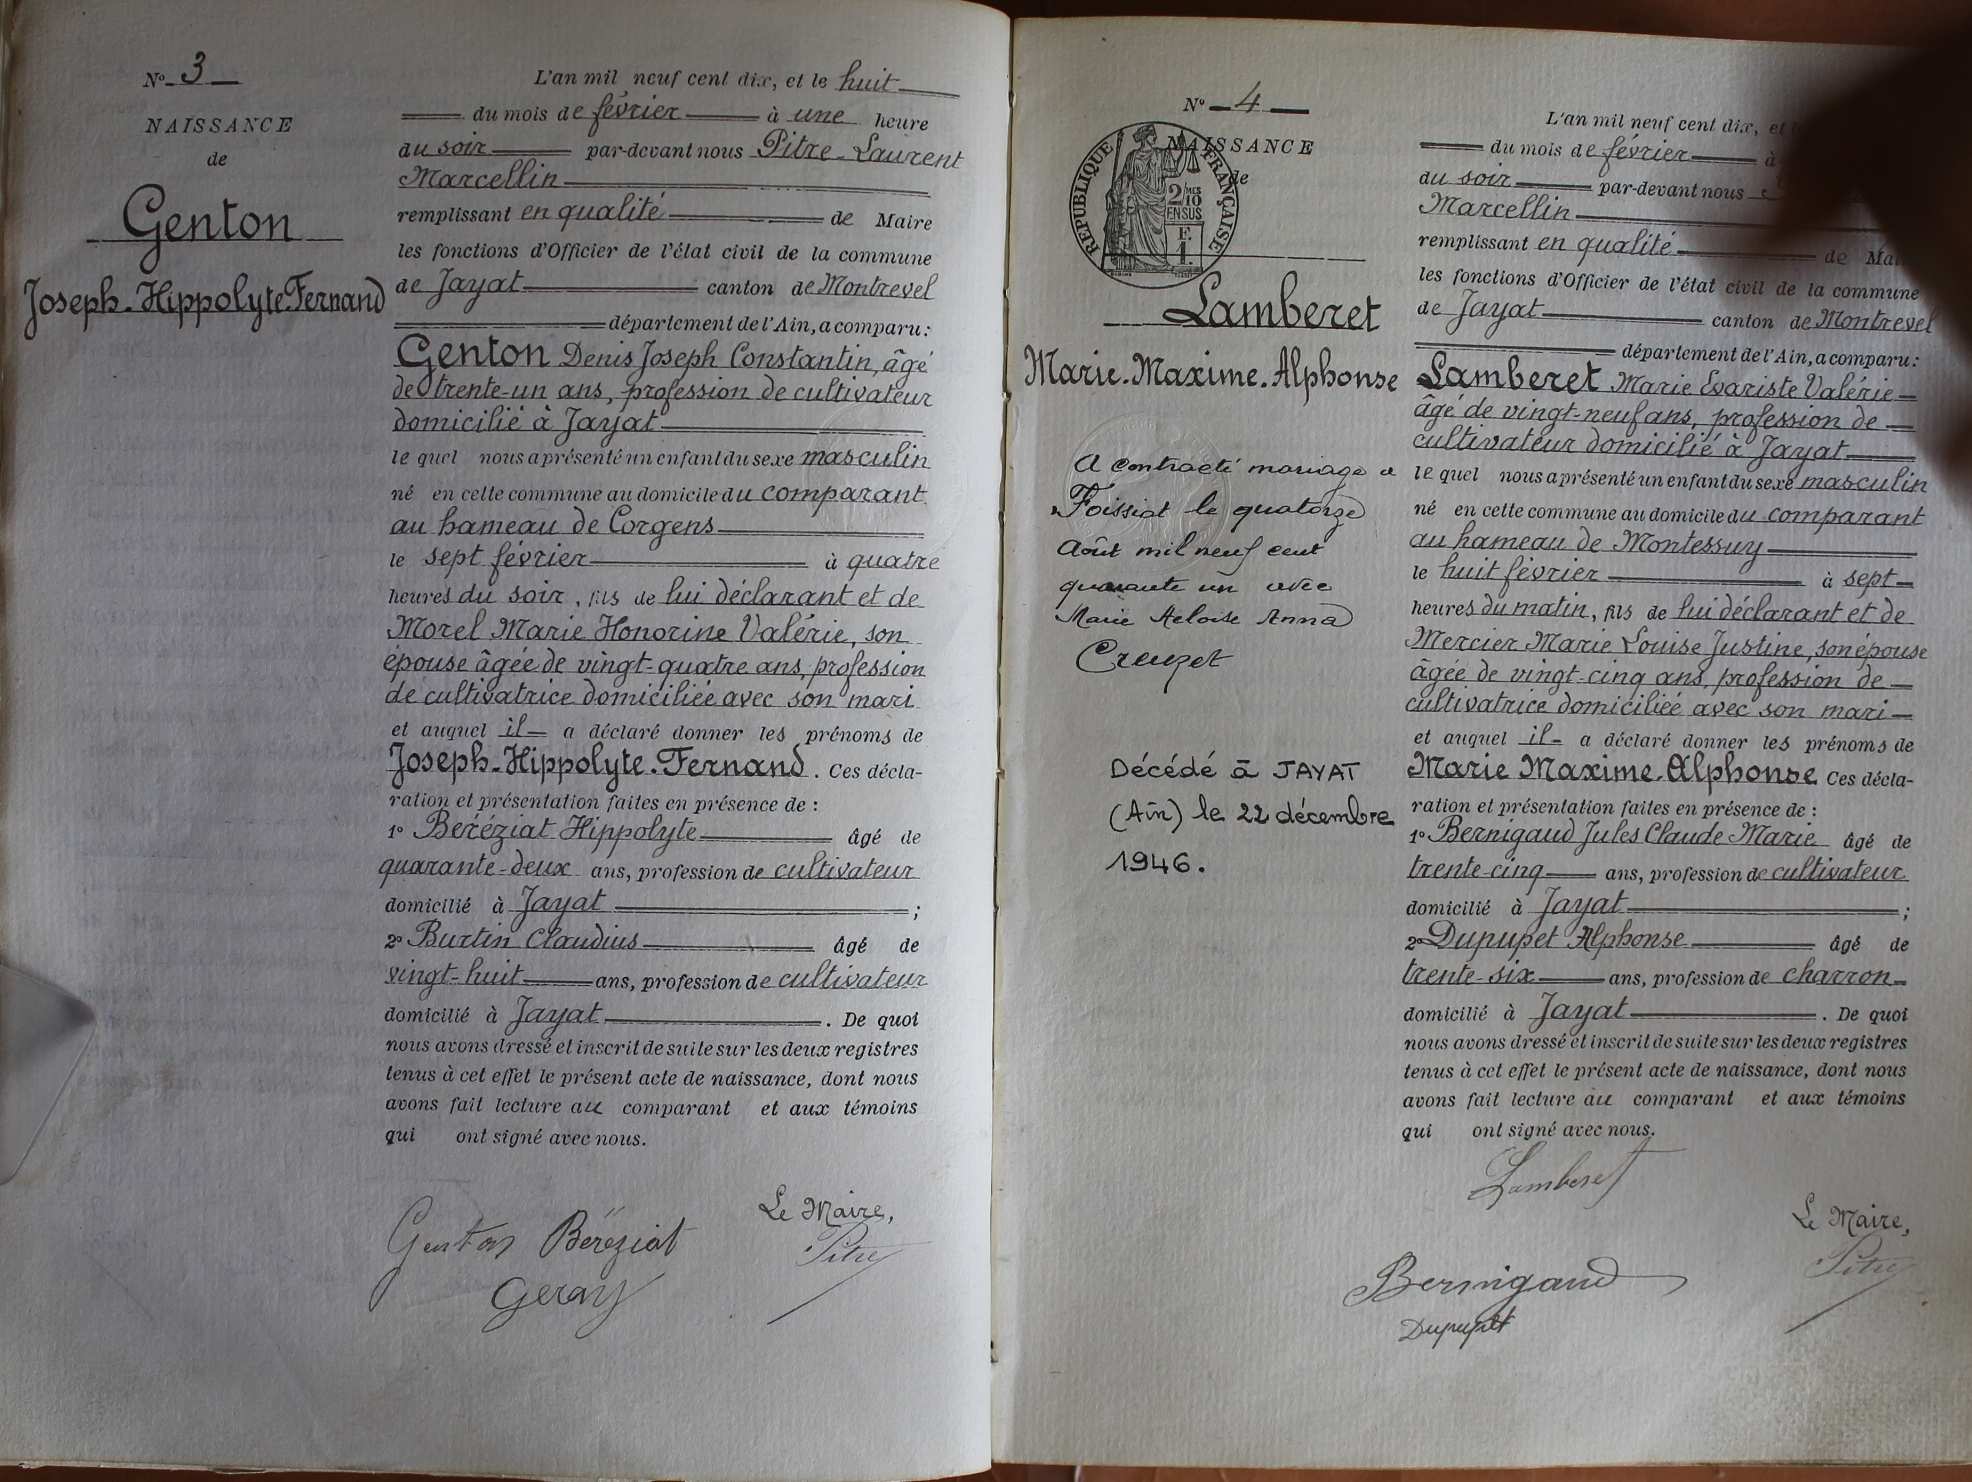 Nº 3
NAISSANCE
de
Genton
Joseph-Hippolyte-Fernand
L'an mil neuf cent dix, et le huit
du mois de février à une heure
du soir par-devant nous Pitre-Laurent
Marcellin
remplissant en qualité de Maire
les fonctions d'Officier de l'état civil de la commune
de Jayat canton de Montrevel
département de l'Ain, a comparu:
Genton Denis Joseph Constantin, âgé
de trente-un ans, profession de cultivateur
domicilié à Jayat
le quel nous a présenté un enfant du sexe masculin
né en cette commune au domicile du comparant
au hameau de Corgens
le sept février à quatre
heures du soir, fils de lui déclarant et de
Morel Marie Honorine Valérie, son
épouse âgée de vingt-quatre ans, profession
de cultivatrice domiciliée avec son mari
et auquel il a déclaré donner les prénoms de
Joseph-Hippolyte-Fernand. Ces décla-
ration et présentation faites en présence de :
1º Beréziat Hippolyte âgé de
quarante-deux ans, profession de cultivateur
domicilié à Jayat ;
2º Burtin Claudius âgé de
vingt-huit ans, profession de cultivateur
domicilié à Jayat . De quoi
nous avons dressé et inscrit de suite sur les deux registres
tenus à cet effet le présent acte de naissance, dont nous
avons fait lecture au comparant et aux témoins
qui ont signé avec nous.
Le Maire,
Genton Béréziat Pitre
Nº 4
NAISSANCE
de
RÉPUBLIQUE FRANÇAISE
2/10 MES
EN SUS
F.
1.
Lamberet
Marie-Maxime-Alphonse
A contracté mariage à
Foissiat le quatorze
Août mil neuf cent
quarante un avec
Marie Héloïse Anna
Creuzet
Décédé à JAYAT
(Ain) le 22 décembre
1946.
L'an mil neuf cent dix, et
du mois de février à
du soir par-devant nous
Marcellin
remplissant en qualité de Mai
les fonctions d'Officier de l'état civil de la commune
de Jayat canton de Montrevel
département de l'Ain, a comparu:
Lamberet Marie Evariste Valérie
âgé de vingt-neuf ans, profession de
cultivateur domicilié à Jayat
le quel nous a présenté un enfant du sexe masculin
né en cette commune au domicile du comparant
au hameau de Montessuy
le huit février à sept
heures du matin, fils de lui déclarant et de
Mercier Marie Louise Justine, son épouse
âgée de vingt-cinq ans, profession de
cultivatrice domiciliée avec son mari
et auquel il a déclaré donner les prénoms de
Marie Maxime-Alphonse Ces décla-
ration et présentation faites en présence de :
1º Bernigaud Jules Claude Marie âgé de
trente-cinq ans, profession de cultivateur
domicilié à Jayat ;
2º Dupupet Alphonse âgé de
trente-six ans, profession de charron
domicilié à Jayat . De quoi
nous avons dressé et inscrit de suite sur les deux registres
tenus à cet effet le présent acte de naissance, dont nous
avons fait lecture au comparant et aux témoins
qui ont signé avec nous.
Lamberet
Le Maire,
Pitre
Bernigaud
Dupupet